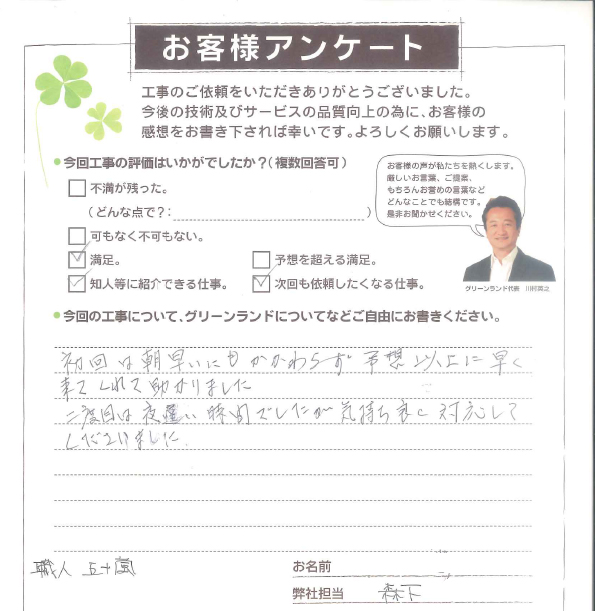 お客様アンケート
工事のご依頼をいただきありがとうございました。
今後の技術及びサービスの品質向上の為に、お客様の
感想をお書き下されば幸いです。よろしくお願いします。
・今回工事の評価はいかがでしたか？(複数回答可)
不満が残った。
(どんな点で？: )
可もなく不可もない。
満足。
予想を超える満足。
知人等に紹介できる仕事。
次回も依頼したくなる仕事。
お客様の声が私たちを熱くします。
厳しいお言葉、ご提案、
もちろんお誉めの言葉など
どんなことでも結構です。
是非お聞かせください。
グリーンランド代表 川村英之
・今回の工事について、グリーンランドについてなどご自由にお書きください。
初回は朝早いにもかかわらず 予想以上に早く
来てくれて助かりました
二度目は夜遅い時間でしたが気持ち良く対応して
くださいました.
職人 五十嵐
お名前
弊社担当 森下